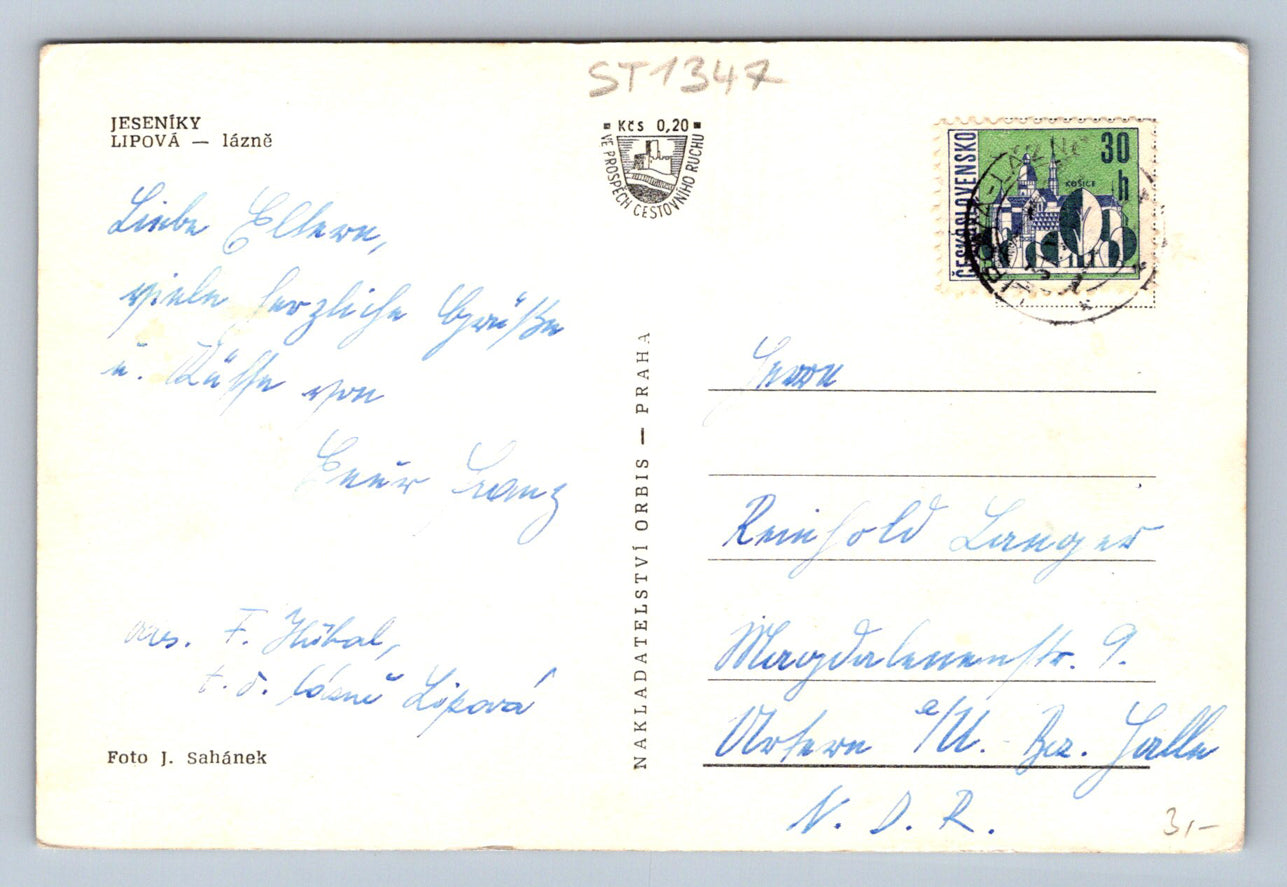 ST1347
JESENÍKY
LIPOVÁ — lázně
Kčs 0,20
VE PROSPĚCH CESTOVNÍHO RUCHU
ČESKOSLOVENSKO
30
h
KOŠICE
Liebe Eltern,
viele herzliche Grüße
u. Küsse von
Euer Franz
F. Hübal,
t. č. lázně Lipová
Foto J. Sahánek
NAKLADATELSTVÍ ORBIS — PRAHA
Herrn
Reinhold Langer
Magdalenenstr. 9.
Artern a/U. Bz. Halle
N. D. R.
3,-